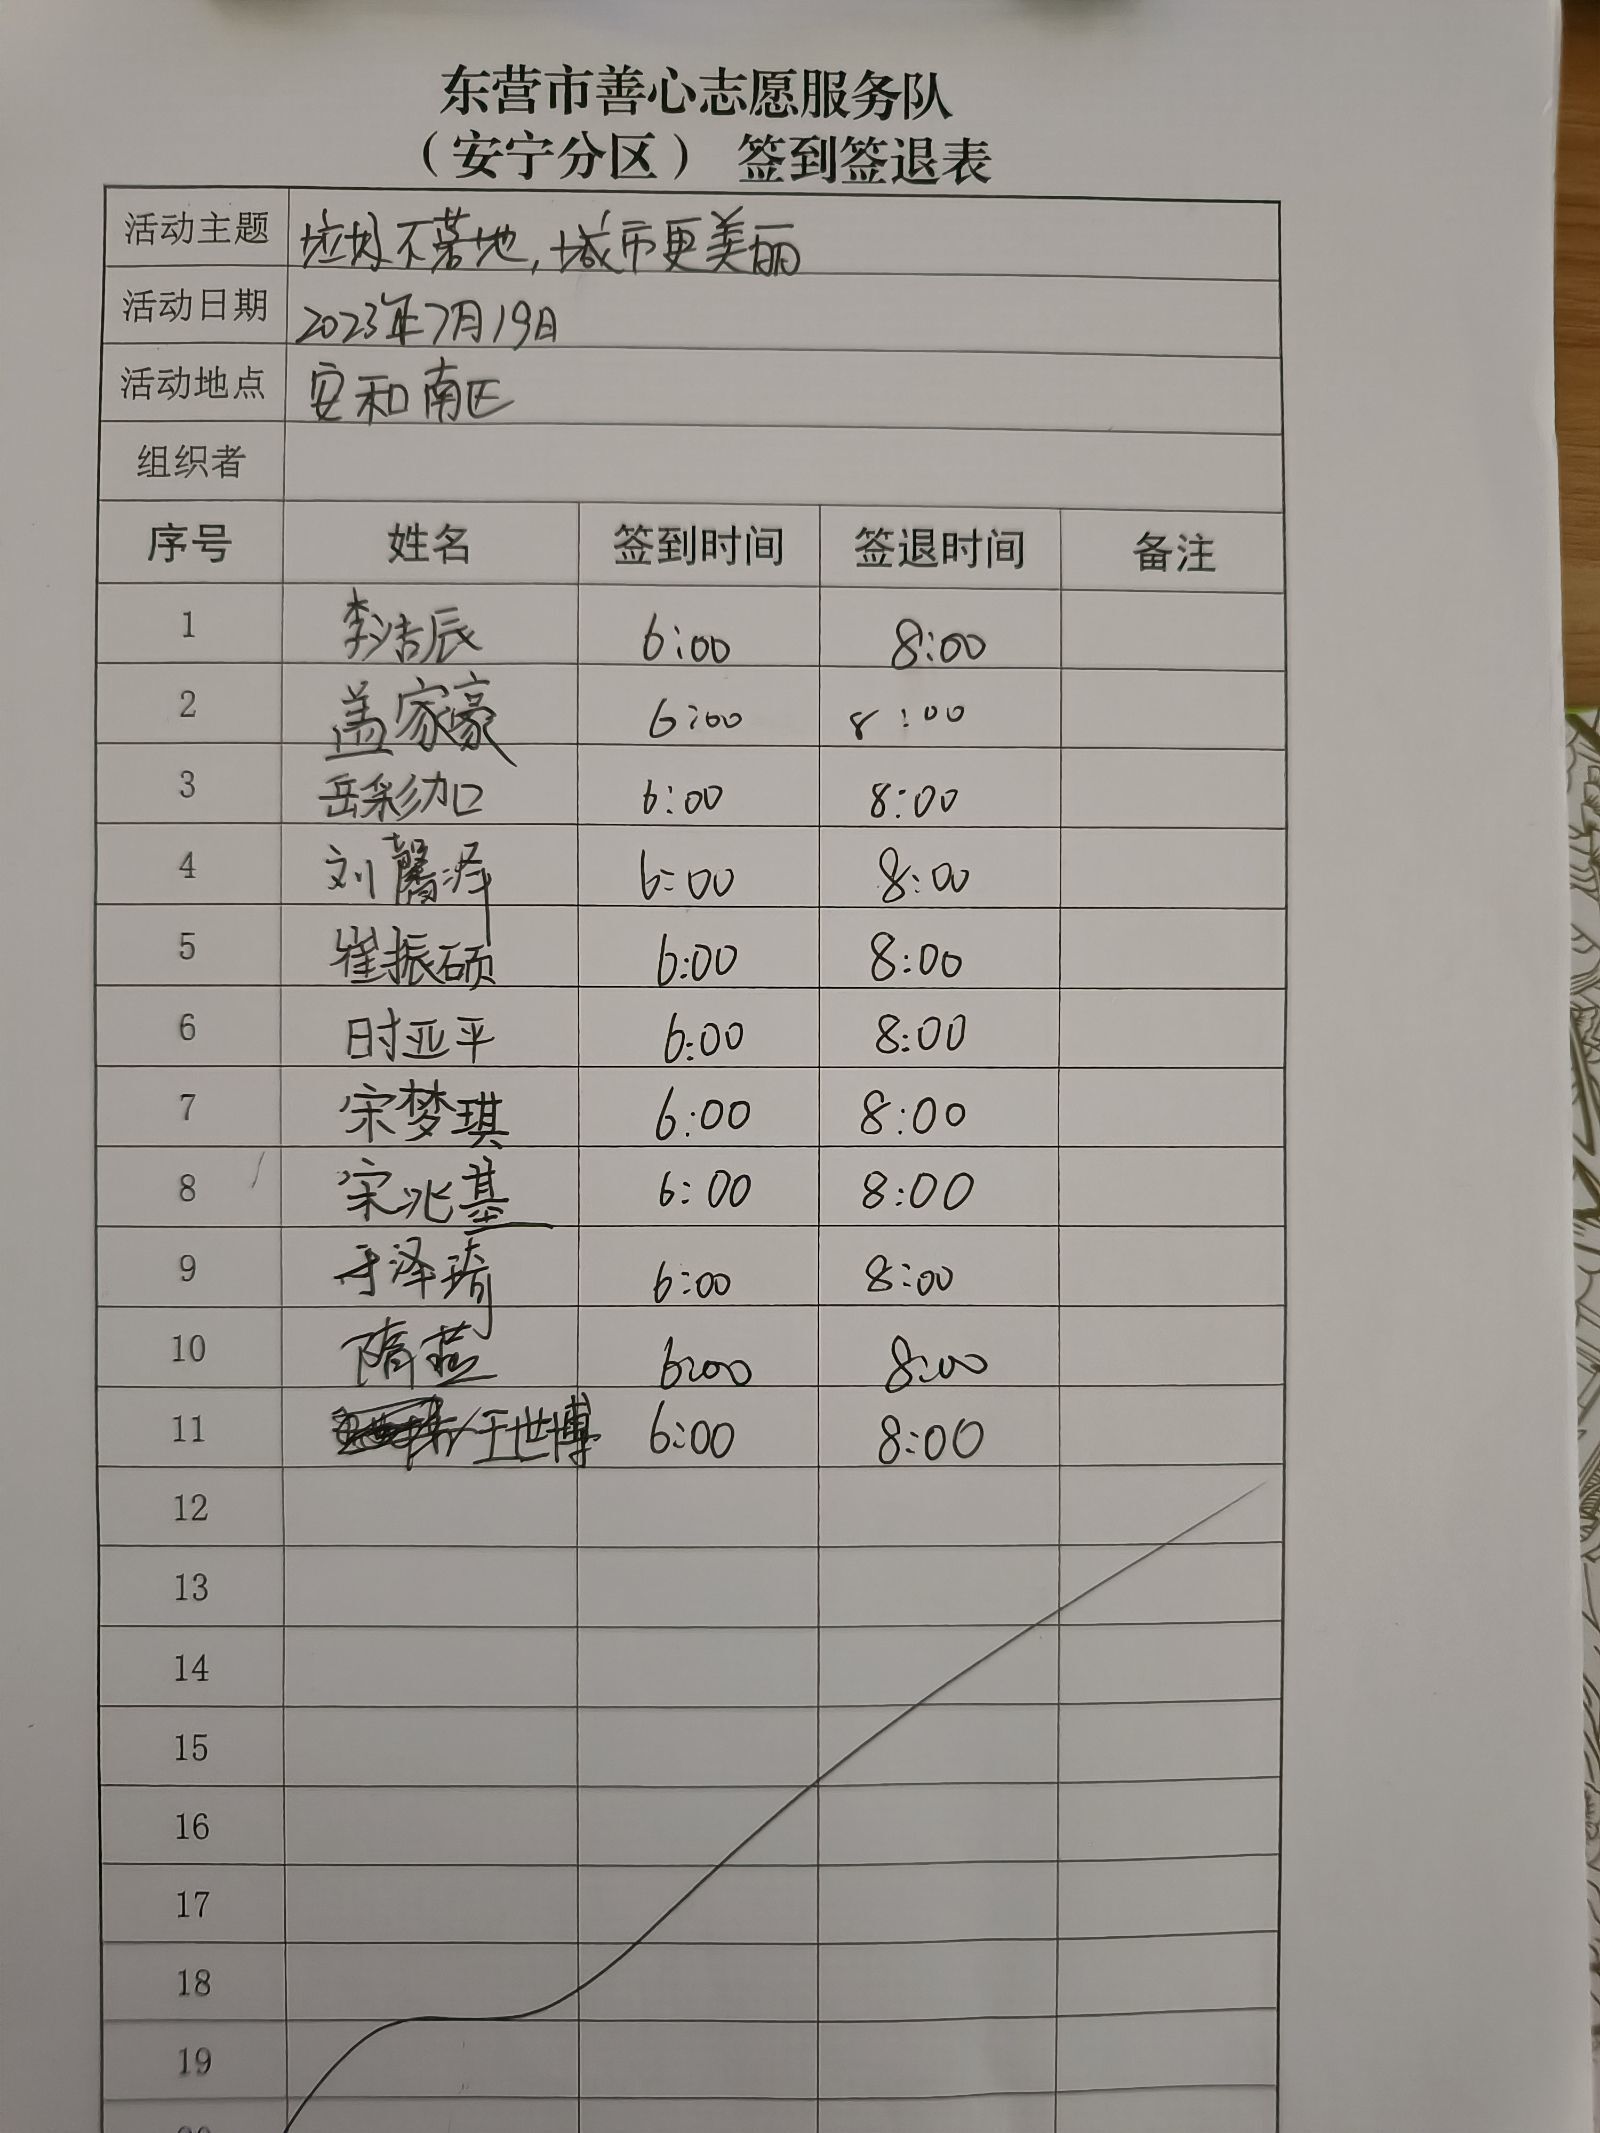 东营市善心志愿服务队
（安宁分区） 签到签退表
活动主题 垃圾不落地,城市更美丽
活动日期 2023年7月19日
活动地点 安和南区
组织者
序号 姓名 签到时间 签退时间 备注
1 李浩辰 6:00 8:00
2 盖家豪 6:00 8:00
3 岳彩加 6:00 8:00
4 刘馨泽 6:00 8:00
5 崔振硕 6:00 8:00
6 时亚平 6:00 8:00
7 宋梦琪 6:00 8:00
8 宋兆基 6:00 8:00
9 于泽琦 6:00 8:00
10 隋燕 6:00 8:00
11 王世博 6:00 8:00
12
13
14
15
16
17
18
19